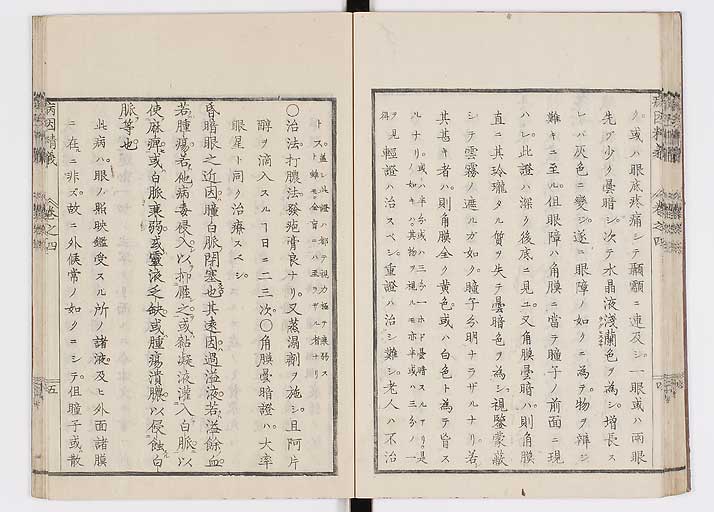 ク。或ハ眼底疼痛シテ顳顬ニ連及シ。一眼或ハ兩眼
先ヅ少ク曇暗シ。次テ水晶液淺蘭色ヲ為シ。增長ス
レバ灰色ニ變シ。遂ニ眼障ノ如クニ為テ。物ヲ辨シ
難キニ至ル。但眼障ハ角膜ニ當テ瞳子ノ前面ニ現
ハレ。此證ハ深ク後底ニ見ユ。又角膜曇暗ハ。則角膜
直ニ其玲瓏タル質ヲ失テ曇暗色ヲ為シ。視鑒蒙蔽
シテ雲霧ノ遮ルガ如ク。瞳子分明ナラザルナリ。若
其甚キ者ハ。則角膜全ク黄色或ハ白色ト為テ皆ス
ルナリ。
ヲ見輕證ハ治スベシ。重證ハ治シ難シ。老人ハ不治
トス。
〇治法打膿法發疱膏良ナリ。又蒸漏劑ヲ施シ。且阿片
醇ヲ滴入スルヿ日ニ二三次。〇角膜曇暗證ハ。大率
眼星ト同ク治療スベシ。
昏暗眼之近因。瞳白脈閉塞也。其遠因。過溢液。若溢餘血。
若腫瘍。若他病毒侵入。以抑壓之。或黏凝液灌入白脈。以
使麻痺。或白脈衰弱。或靈液乏缺。或腫瘍潰膿。以侵蝕白
脈等也。
此病ハ。眼ノ照映鑑受スル所ノ諸液。及ヒ外面諸膜
ニ在ニ非ズ。故ニ外候常ノ如クニシテ。但瞳子或散
病因精義
卷之四
五